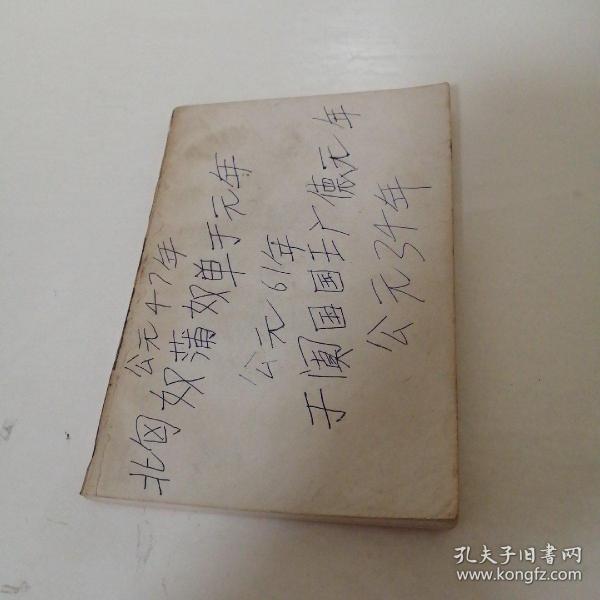 公元47年
北匈奴蒲奴单于元年
公元61年
于阗国国王广德元年
公元34年
孔夫子旧书网
www.kongfz.com